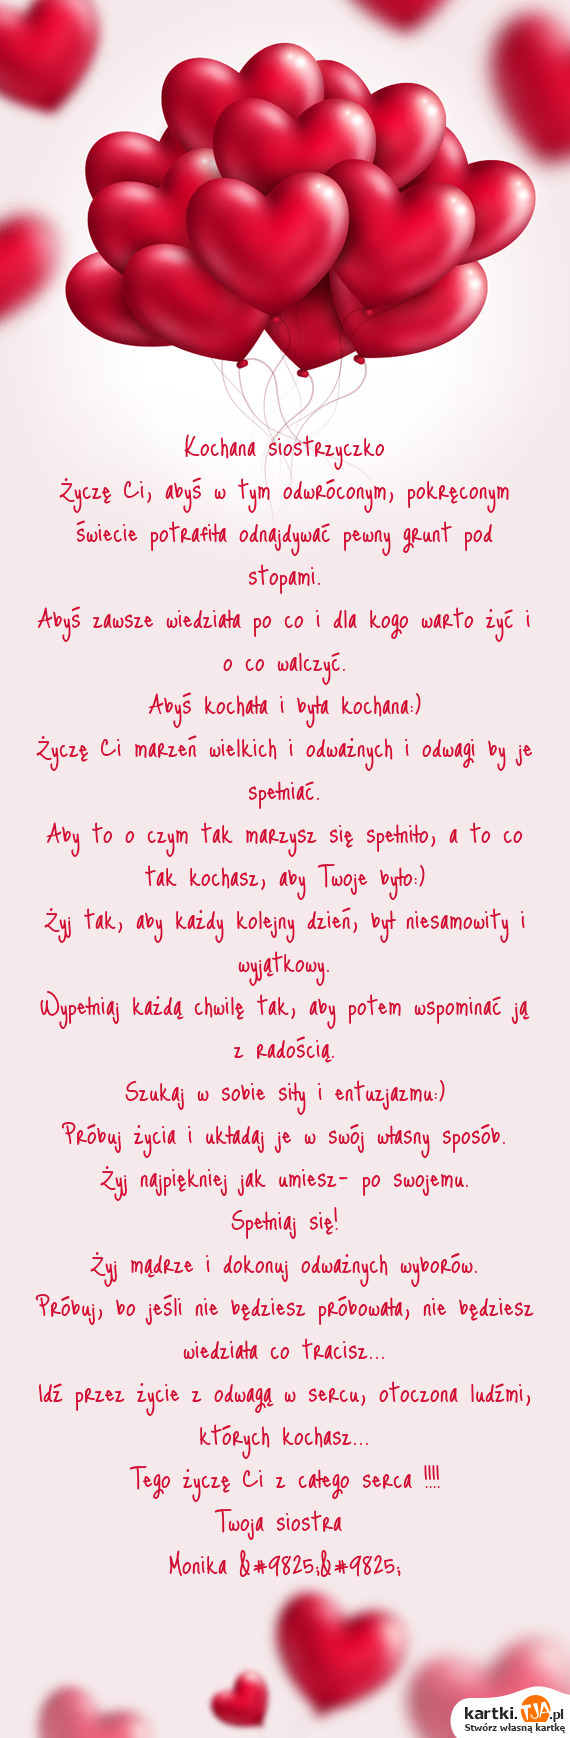 Kochana siostrzyczko
Życzę Ci, abyś w tym odwróconym, pokręconym
świecie potrafiła odnajdywać pewny grunt pod
stopami.
Abyś zawsze wiedziała po co i dla kogo warto żyć i
o co walczyć.
Abyś kochała i była kochana:)
Życzę Ci marzeń wielkich i odważnych i odwagi by je
spełniać.
Aby to o czym tak marzysz się spełniło, a to co
tak kochasz, aby Twoje było:)
Żyj tak, aby każdy kolejny dzień, był niesamowity i
wyjątkowy.
Wypełniaj każdą chwilę tak, aby potem wspominać ją
z radością.
Szukaj w sobie siły i entuzjazmu:)
Próbuj życia i układaj je w swój własny sposób.
Żyj najpiękniej jak umiesz- po swojemu.
Spełniaj się!
Żyj mądrze i dokonuj odważnych wyborów.
Próbuj, bo jeśli nie będziesz próbowała, nie będziesz
wiedziała co tracisz...
Idź przez życie z odwagą w sercu, otoczona ludźmi,
których kochasz...
Tego życzę Ci z całego serca !!!!
Twoja siostra
Monika &#9825;&#9825;
kartki.TJA.pl
Stwórz własną kartkę